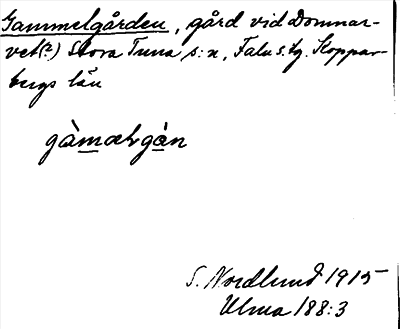 Gammelgården, gård vid Domnar-
vet(?) Stora Tuna s:n, Falu s. fg. Koppar-
bergs län
gàmælgàn
S. Nordlund 1915
Ulma 188:3